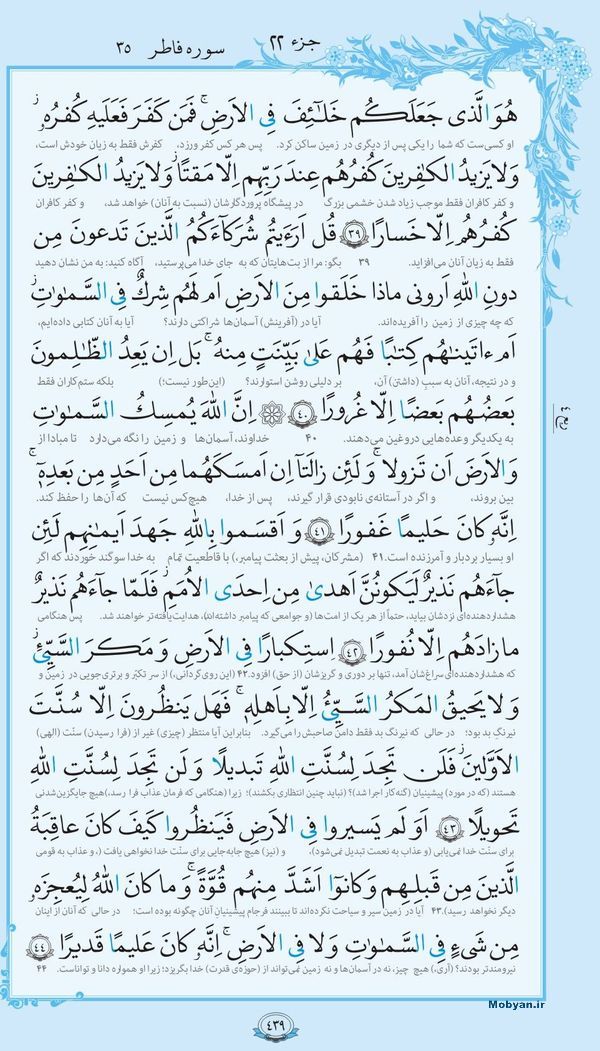 جزء ۲۲ سوره فاطر ۳۵
هُوَ الَّذی جَعَلَکُم خَلٰٓئِفَ فِی الاَرضِ ۚ فَمَن کَفَرَ فَعَلَیهِ کُفرُهٗ ۖ
او کسی‌ست که شما را یکی پس از دیگری در زمین ساکن کرد. پس هر کس کفر ورزد، کفرش فقط به زیان خودش است،
وَلا یَزیدُ الکٰفِرینَ کُفرُهُم عِندَ رَبِّهِم اِلّا مَقتًا ۖ وَلا یَزیدُ الکٰفِرینَ
و کفر کافران فقط موجب زیاد شدن خشمی بزرگ در پیشگاه پروردگارشان (نسبت به آنان) خواهد شد، و کفر کافران
کُفرُهُم اِلّا خَسارًا ۳۹ قُل اَرَءَیتُم شُرَکآءَکُمُ الَّذینَ تَدعونَ مِن
فقط به زیان آنان می‌افزاید. ۳۹ بگو: مرا از بت‌هایتان که به جای خدا می‌پرستید، آگاه کنید: به من نشان دهید
دونِ اللّٰهِ اَرونی ماذا خَلَقوا مِنَ الاَرضِ اَم لَهُم شِرکٌ فِی السَّمٰوٰتِ
که چه چیزی از زمین را آفریده‌اند. آیا در (آفرینش) آسمان‌ها شراکتی دارند؟ آیا به آنان کتابی داده‌ایم،
اَم ءاتَینٰهُم کِتٰبًا فَهُم عَلیٰ بَیِّنَتٍ مِنهُ ۚ بَل اِن یَعِدُ الظّٰلِمونَ
و در نتیجه، آنان به سبب (داشتن) آن، بر دلیلی روشن استوارند؟ (این‌طور نیست؛) بلکه ستم‌کاران فقط
بَعضُهُم بَعضًا اِلّا غُرورًا ۴۰ اِنَّ اللّٰهَ یُمسِکُ السَّمٰوٰتِ
به یکدیگر وعده‌هایی دروغین می‌دهند. ۴۰ خداوند، آسمان‌ها و زمین را نگه می‌دارد تا مبادا از
وَالاَرضَ اَن تَزولا ۚ وَلَئِن زالَتآ اِن اَمسَکَهُما مِن اَحَدٍ مِن بَعدِهٖٓ ۚ
بین بروند، و اگر در آستانه‌ی نابودی قرار گیرند، پس از خدا، هیچ‌کس نیست که آن‌ها را حفظ کند.
اِنَّهٗ کانَ حَلیمًا غَفورًا ۴۱ وَ اَقسَموا بِاللّٰهِ جَهدَ اَیمٰنِهِم لَئِن
او بسیار بردبار و آمرزنده است. ۴۱ (مشرکان، پیش از بعثت پیامبر،) با قاطعیت تمام به خدا سوگند خوردند که اگر
جآءَهُم نَذیرٌ لَیَکونُنَّ اَهدیٰ مِن اِحدَی الاُمَمِ ۖ فَلَمّا جآءَهُم نَذیرٌ
هشداردهنده‌ای نزدشان بیاید، حتماً از هر یک از امت‌ها (و جوامعی که پیامبر داشته‌اند)، هدایت‌یافته‌تر خواهند شد. پس هنگامی
ما زادَهُم اِلّا نُفورًا ۴۲ اِستِکبارًا فِی الاَرضِ وَ مَکرَ السَّیِّئِ ۚ
که هشداردهنده‌ای سراغشان آمد، تنها بر دوری و گریزشان (از حق) افزود. ۴۲ (این روی‌گردانی،) از سر تکبّر و برتری‌جویی در زمین و
وَلا یَحیقُ المَکرُ السَّیِّئُ اِلّا بِاَهلِهٖ ۚ فَهَل یَنظُرونَ اِلّا سُنَّتَ
نیرنگ بد بود؛ در حالی که نیرنگ بد فقط دامن صاحبش را می‌گیرد. بنابراین آیا منتظر (چیزی) غیر از (فرا رسیدن) سنّت (الهی)
الاَوَّلینَ ۚ فَلَن تَجِدَ لِسُنَّتِ اللّٰهِ تَبدیلًا ۖ وَلَن تَجِدَ لِسُنَّتِ اللّٰهِ
هستند (که در مورد) پیشینیان (گنه‌کار اجرا شد)؟ (نباید چنین انتظاری بکشند)؛ زیرا (هنگامی که فرمان عذاب فرا رسد،) هیچ جایگزین‌شدنی
تَحویلًا ۴۳ اَوَ لَم یَسیروا فِی الاَرضِ فَیَنظُروا کَیفَ کانَ عاقِبَةُ
برای سنّت خدا نمی‌یابی (و عذاب به نعمت تبدیل نمی‌شود)، و (نیز) هیچ جابه‌جایی برای سنّت خدا نخواهی یافت (، و عذاب به قومی
الَّذینَ مِن قَبلِهِم وَ کانوٓا اَشَدَّ مِنهُم قُوَّةً ۚ وَما کانَ اللّٰهُ لِیُعجِزَهٗ
دیگر نخواهد رسید). ۴۳ آیا در زمین سیر و سیاحت نکرده‌اند تا ببینند فرجام پیشینیان آنان چگونه بوده است؛ در حالی که آنان از اینان
مِن شَیءٍ فِی السَّمٰوٰتِ وَلا فِی الاَرضِ ۚ اِنَّهٗ کانَ عَلیمًا قَدیرًا ۴۴
نیرومندتر بودند؟ (آری،) هیچ چیز، نه در آسمان‌ها و نه زمین نمی‌تواند از (حوزه‌ی قدرت) خدا بگریزد؛ زیرا او همواره دانا و تواناست. ۴۴
ربع ۴
۴۳۹
Mobyan.ir